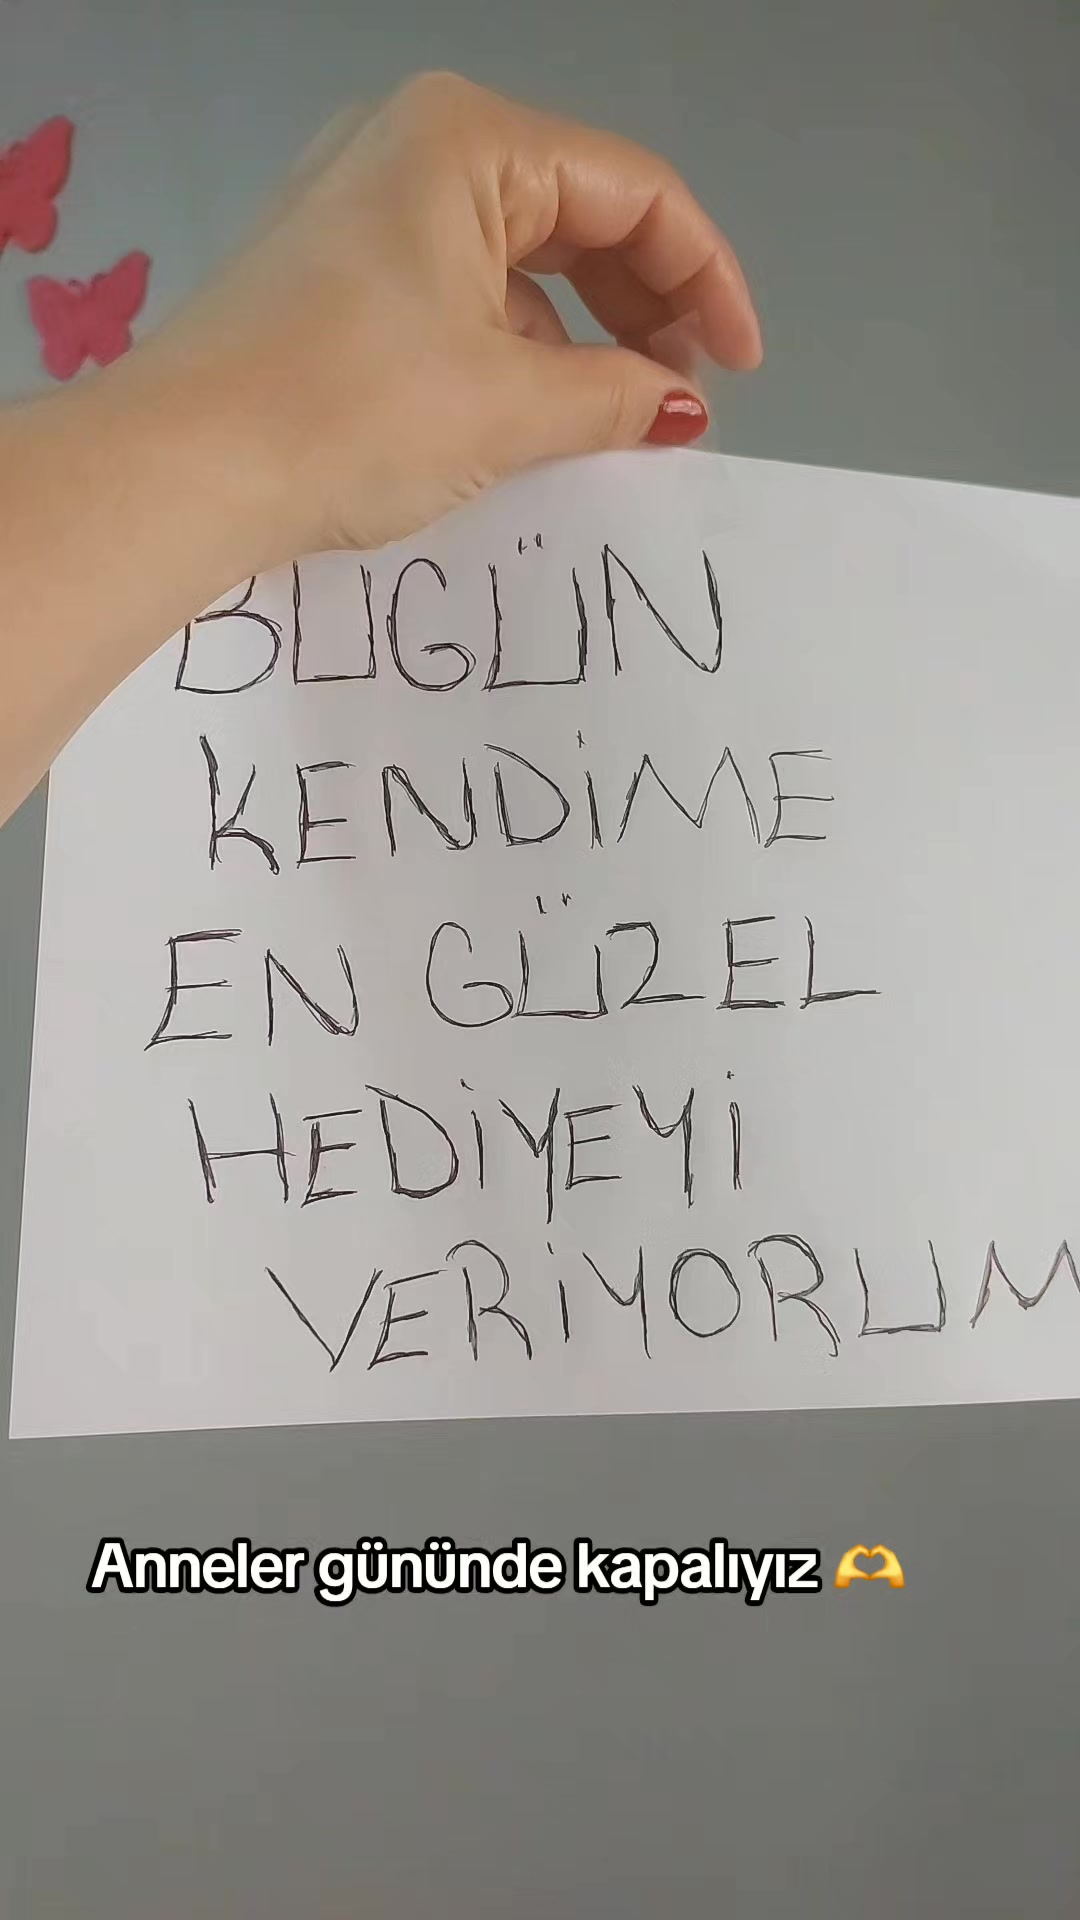 BUGÜN
KENDİME
EN GÜZEL
HEDİYEYİ
VERİYORUM
Anneler gününde kapalıyız 🫶